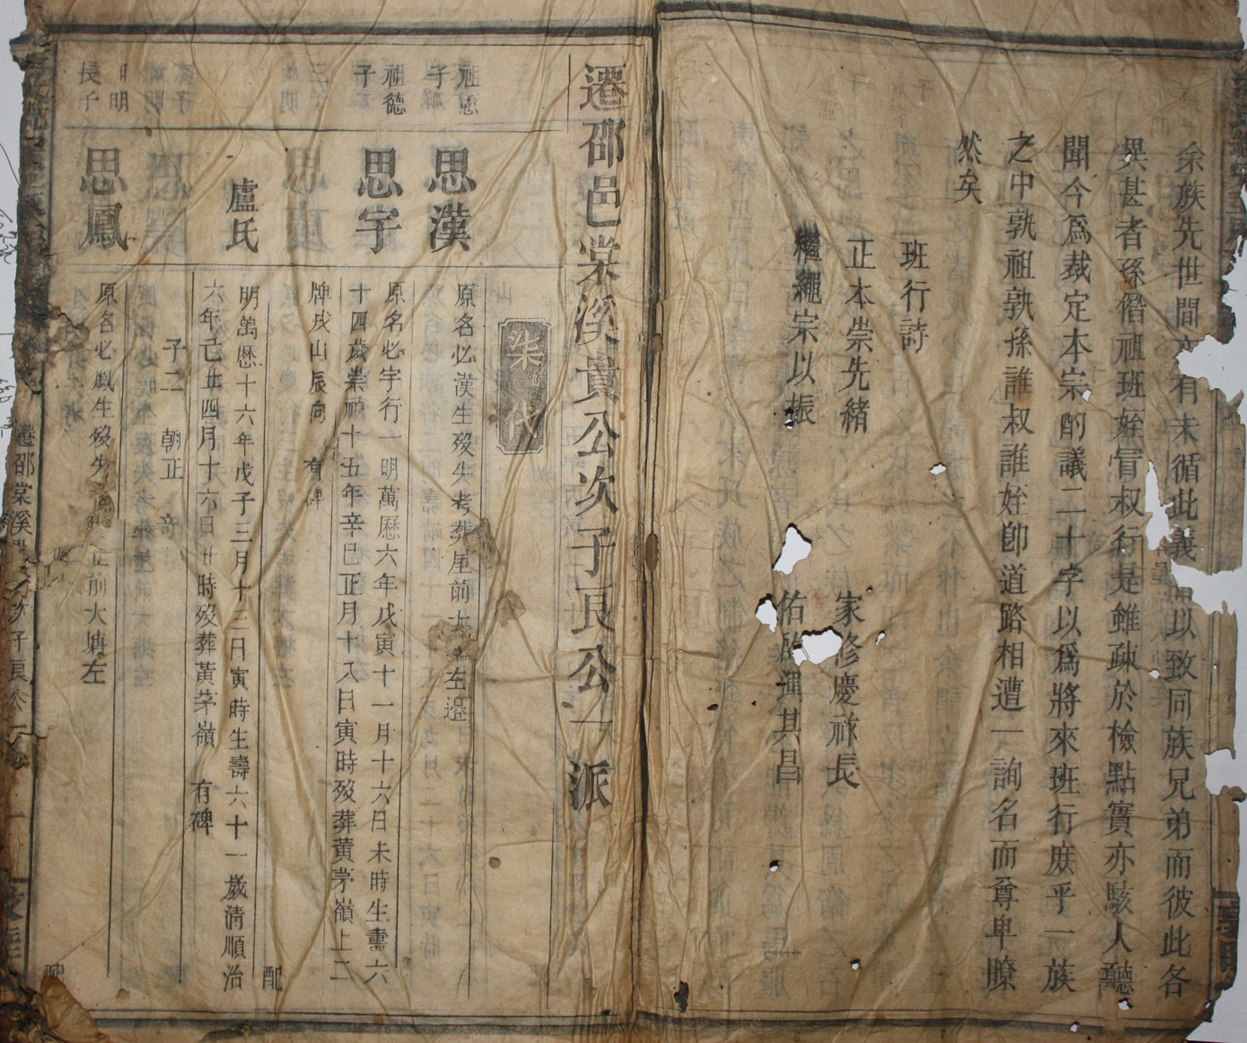 余族先世間有未循此義以致同族兄弟而彼此各
異甚者係僭祖班姪冒叔行是雖疎於檢點實亦駭人聽
聞今爲裁定本宗酌議二十字以爲將來班行庶乎一族
之中孰祖孰孫誰叔誰姪卽道路相遭一詢名而尊卑瞭
然矣
班行詩
正本崇先緒 家修慶祚長
繼繩宗以振 佑啟運其昌
遷邵邑棠溪貴公次子良公一派
柒代
祖惠子 思漢 原名必漢生歿失考葬屋前大左邊
祖德子 思字 原名必字行一明萬歷六年戊寅十一月十六日未時生壽六
十四歲崇禎十五年辛巳正月十八日寅時歿葬黃茅嶺上二
牌戌山辰向 有碑 配
盧氏 明萬歷十六年戊子三月十二日寅時生壽六十一歲清順治
六年己丑四月十六日廿時歿葬黃茅嶺 有碑
子二 朝正 帝
明明長子 思鳳 原名必鳳生歿失 前大塘左
配
遷邵棠溪貴公次子良公一派